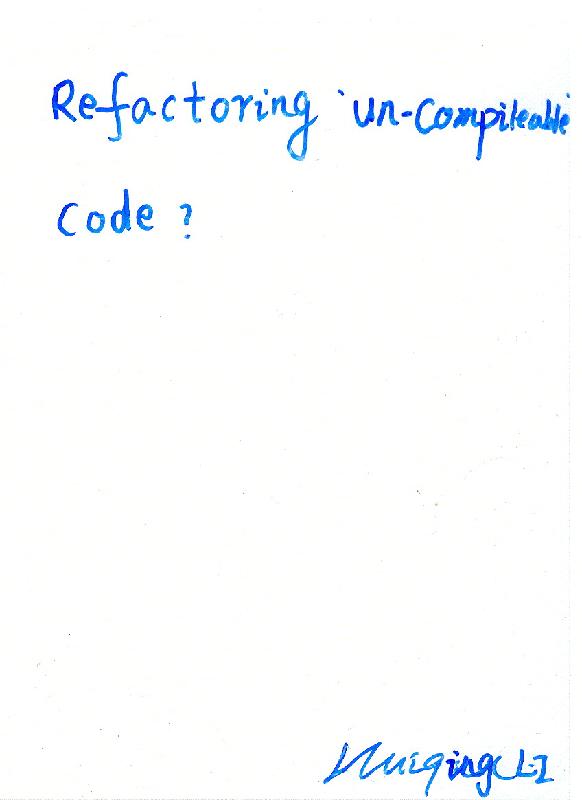 Refactoring 'un-compileable'
code ?
Huiqing Li